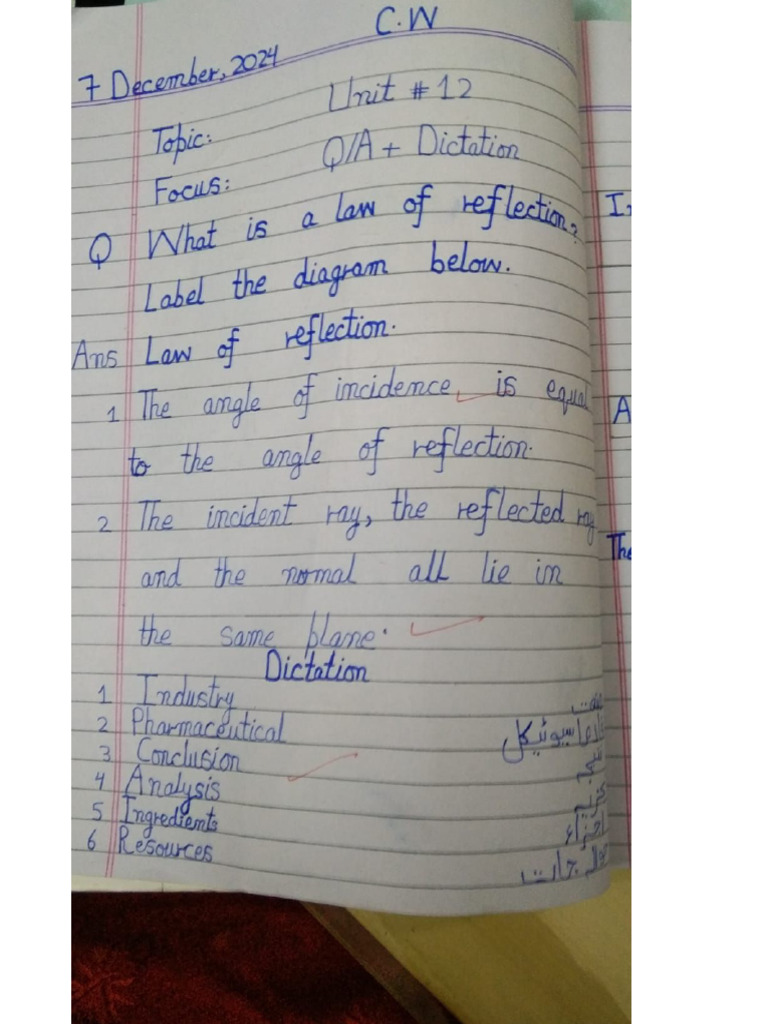 C.W
7 December, 2024
Unit # 12
Topic:
Q/A + Dictation
Focus:
Q What is a law of reflection?
Label the diagram below.
Ans Law of reflection.
1 The angle of incidence is equal
to the angle of reflection.
2 The incident ray, the reflected ray
and the normal all lie in
the same blane.
Dictation
1 Industry
2 Pharmaceutical
3 Conclusion
4 Analysis
5 Ingredients اجزاء
6 Resources
A
The